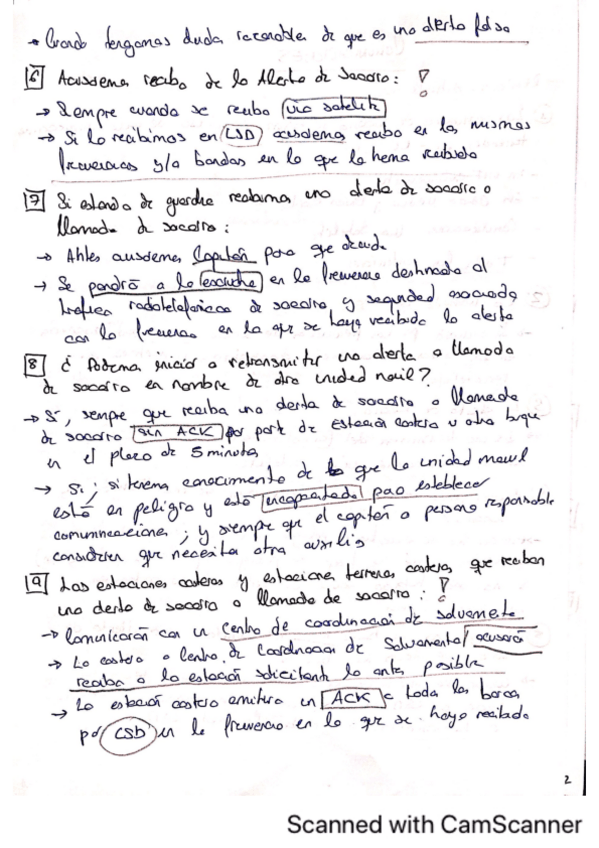 → Cuando tengamos duda razonable de que es una alerta falsa
6 Acusaremos recibo de la Alerta de Socorro:
→ Siempre cuando se reciba vía satélite
→ Si lo recibimos en LSD acusaremos recibo en las mismas
frecuencias y/o bandas en la que la hemos recibido
7 Si estando de guardia recibimos una alerta de socorro o
llamada de socorro:
→ avisaremos Capitán para que decida
→ Se pondrá a la escucha en la frecuencia destinada al
tráfico radiotelefónico de socorro y seguridad asociada
con la frecuencia en la que se haya recibido la alerta
8 ¿Podemos iniciar o retransmitir una alerta o llamada
de socorro en nombre de otra unidad móvil?
→ Sí, siempre que reciba una alerta de socorro o llamada
de socorro sin ACK por parte de Estación costera u otro buque
en el plazo de 5 minutos
→ Sí, si tenemos conocimiento de que la unidad móvil
está en peligro y está incapacitada para establecer
comunicaciones, y siempre que el capitán o persona responsable
consideren que necesita otra auxilio
9 Las estaciones costeras y estaciones terrenas costeras que reciban
una alerta de socorro o llamada de socorro:
→ Comunicarán con un centro de coordinación de salvamento
→ La costera o Centro de Coordinación de Salvamento acusará
recibo a la estación solicitante lo antes posible
→ La estación costera emitirá un ACK a todos los barcos
por CSD en la frecuencia en la que se haya recibido
2
Scanned with CamScanner